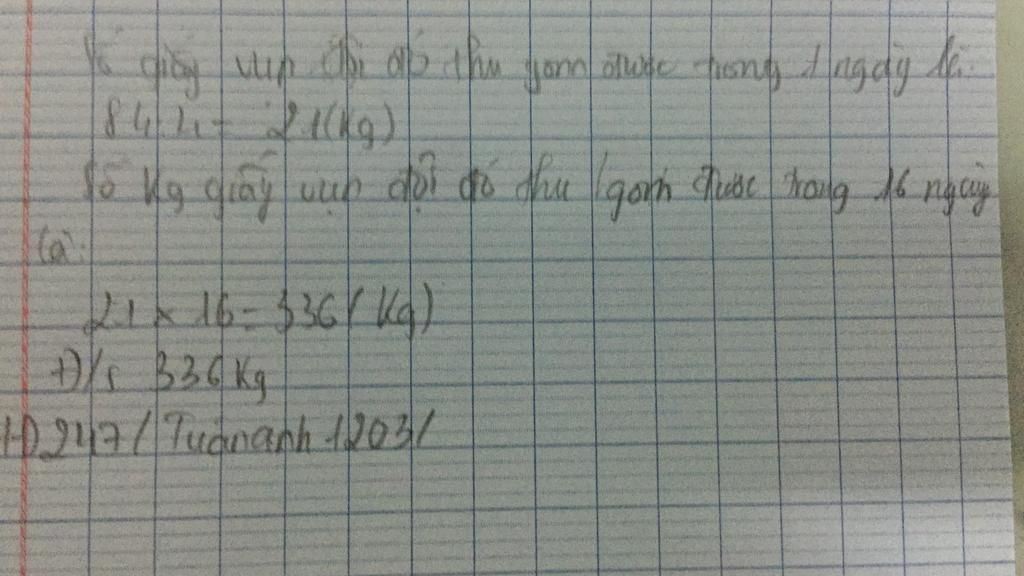 Số giấy vụn đội đó thu gom được trong 1 ngày là:
84:4= 21(kg)
Số kg giấy vụn đội đó thu gom được trong 16 ngày
là:
21 x 16 = 336 ( kg)
Đ/s 336 kg
H)247/ Tuananh 1203/